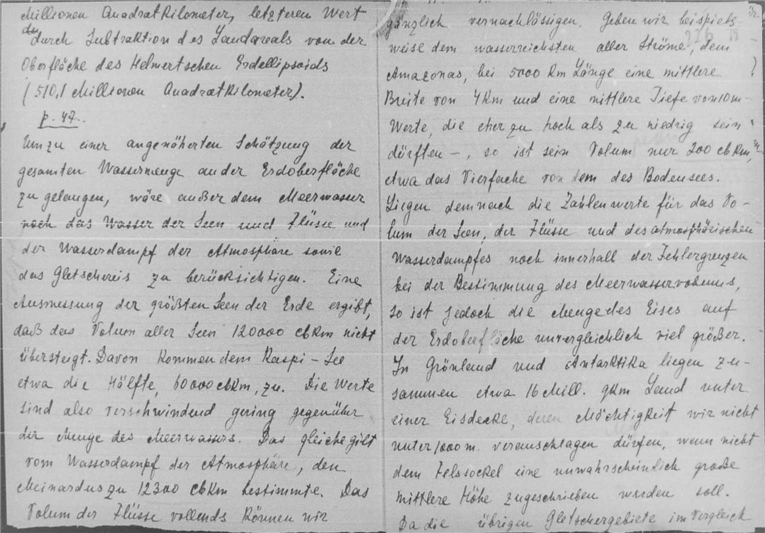 Millionen Quadratkilometer, letzteren Wert
durch Subtraktion des Landareals von der
Oberfläche des Helmertschen Erdellipsoids
(510,1 Millionen Quadratkilometer).
p. 47.
Um zu einer angenäherten Schätzung der
gesamten Wassermenge an der Erdoberfläche
zu gelangen, wäre außer dem Meerwasser
noch das Wasser der Seen und Flüsse und
der Wasserdampf der Atmosphäre sowie
das Gletschereis zu berücksichtigen. Eine
Ausmessung der größten Seen der Erde ergibt,
daß das Volum aller Seen 120000 cbkm nicht
übersteigt. Davon kommen dem Kaspi-See
etwa die Hälfte, 60000 cbkm, zu. Die Werte
sind also verschwindend gering gegenüber
der Menge des Meerwassers. Das gleiche gilt
vom Wasserdampf der Atmosphäre, den
Meinardus zu 12300 cbkm bestimmte. Das
Volum der Flüsse vollends können wir
gänzlich vernachlässigen. Geben wir beispiels-
weise dem wasserreichsten aller Ströme, dem
Amazonas, bei 5000 km Länge eine mittlere
Breite von 4 km und eine mittlere Tiefe von 10 m-
Werte, die eher zu hoch als zu niedrig sein
dürften -, so ist sein Volum nur 200 cbkm,
etwa das Vierfache von dem des Bodensees.
Liegen demnach die Zahlenwerte für das Vo-
lum der Seen, der Flüsse und des atmosphärischen
Wasserdampfes noch innerhalb der Fehlergrenzen
bei der Bestimmung des Meerwasservolumens,
so ist jedoch die Menge des Eises auf
der Erdoberfläche unvergleichlich viel größer.
In Grönland und Antarktika liegen zu-
sammen etwa 16 Mill. qkm Land unter
einer Eisdecke, deren Mächtigkeit wir nicht
unter 1000 m veranschlagen dürfen, wenn nicht
dem Felssockel eine unwahrscheinlich große
mittlere Höhe zugeschrieben werden soll.
Da die übrigen Gletschergebiete im Vergleich